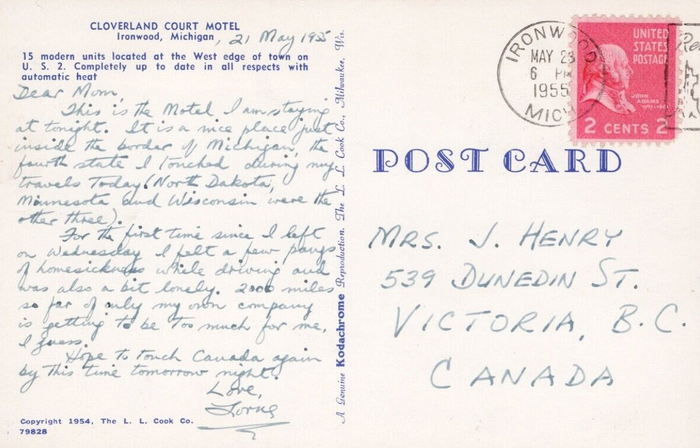 CLOVERLAND COURT MOTEL
Ironwood, Michigan
, 21 May 1955
15 modern units located at the West edge of town on
U. S. 2. Completely up to date in all respects with
automatic heat
Dear Mom,
This is the Motel I am staying
at tonight. It is a nice place just
inside the border of Michigan, the
fourth state I touched during my
travels Today (North Dakota,
Minnesota and Wisconsin were the
other three).
For the first time since I left
on Wednesday I felt a few pangs
of homesickness while driving and
was also a bit lonely. 2000 miles
so far of only my own company
is getting to be too much for me,
I guess.
Hope to touch Canada again
by this time tomorrow night.
Love,
Lorne
Copyright 1954, The L. L. Cook Co.
79828
A Genuine Kodachrome Reproduction. The L. L. Cook Co., Milwaukee, Wis.
IRONWOOD
MAY 23
6 PM
1955
MICH
UNITED
STATES
POSTAGE
JOHN
ADAMS
2 CENTS 2
POST CARD
MRS. J. HENRY
539 DUNEDIN ST.
VICTORIA, B.C.
CANADA